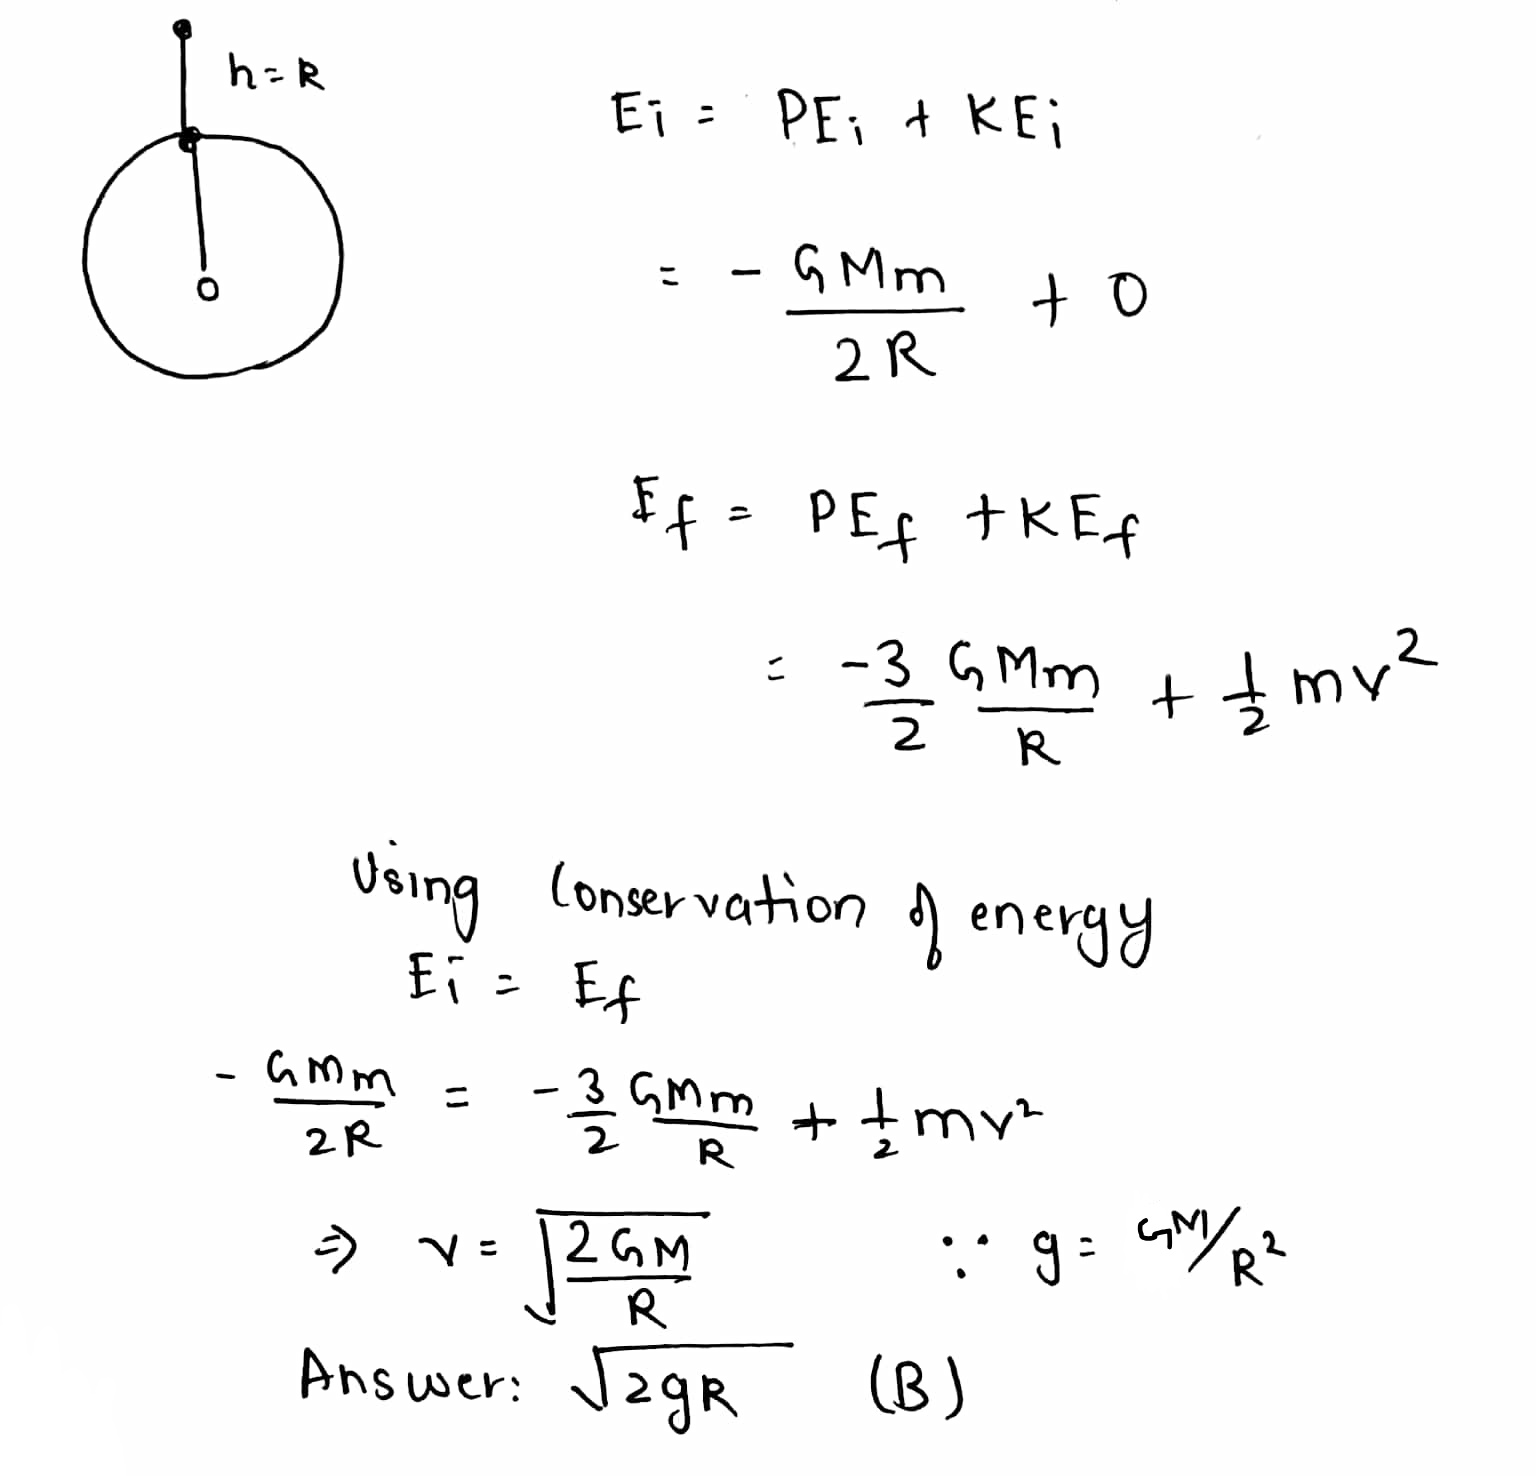 h = R
Ei = PEi + KEi
= - GMm/2R + 0
Ef = PEf + KEf
= -3/2 GMm/R + 1/2 mv²
Using Conservation of energy
Ei = Ef
- GMm/2R = - 3/2 GMm/R + 1/2 mv²
⇒ v = √(2GM/R) ∵ g = GM/R²
Answer: √2gR (B)
O